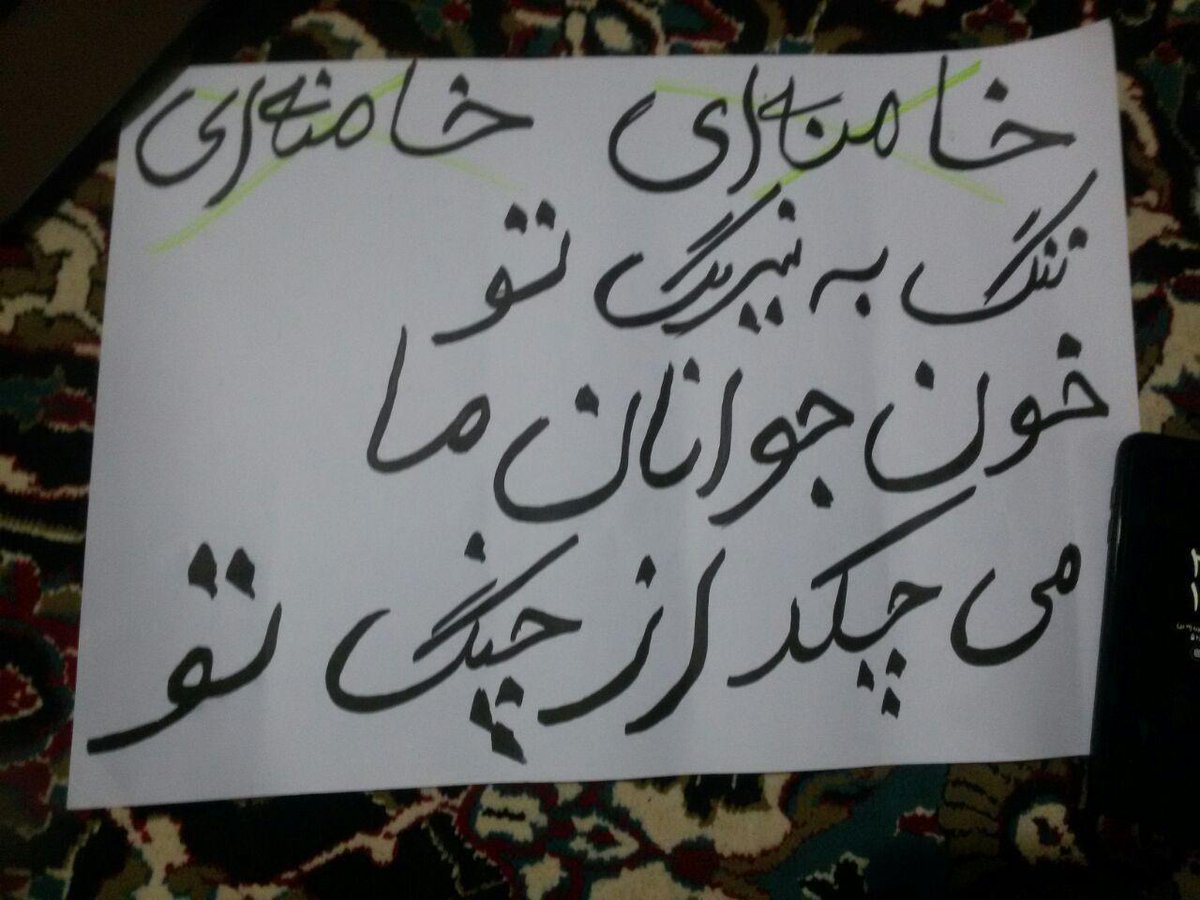 خامنه‌ای خامنه‌ای
تنگ به نیرنگ تو
خون جوانان ما
می چکد از چنگ تو